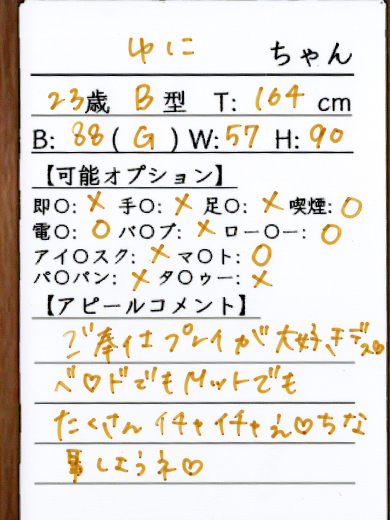 ゆに ちゃん
23歳 B型 T:164cm
B:88(G)W:57 H:90
【可能オプション】
即〇:× 手〇:× 足〇:× 喫煙:〇
電〇:〇 バ〇ブ:× ロー〇ー:〇
アイ〇スク:× マ〇ト:〇
パ〇パン:× タ〇ゥー:×
【アピールコメント】
ご奉仕プレイが大好きデス♡
ベ♡ドでもMットでも
たくさんイチャイチャえ♡ちな
事しようネ♡